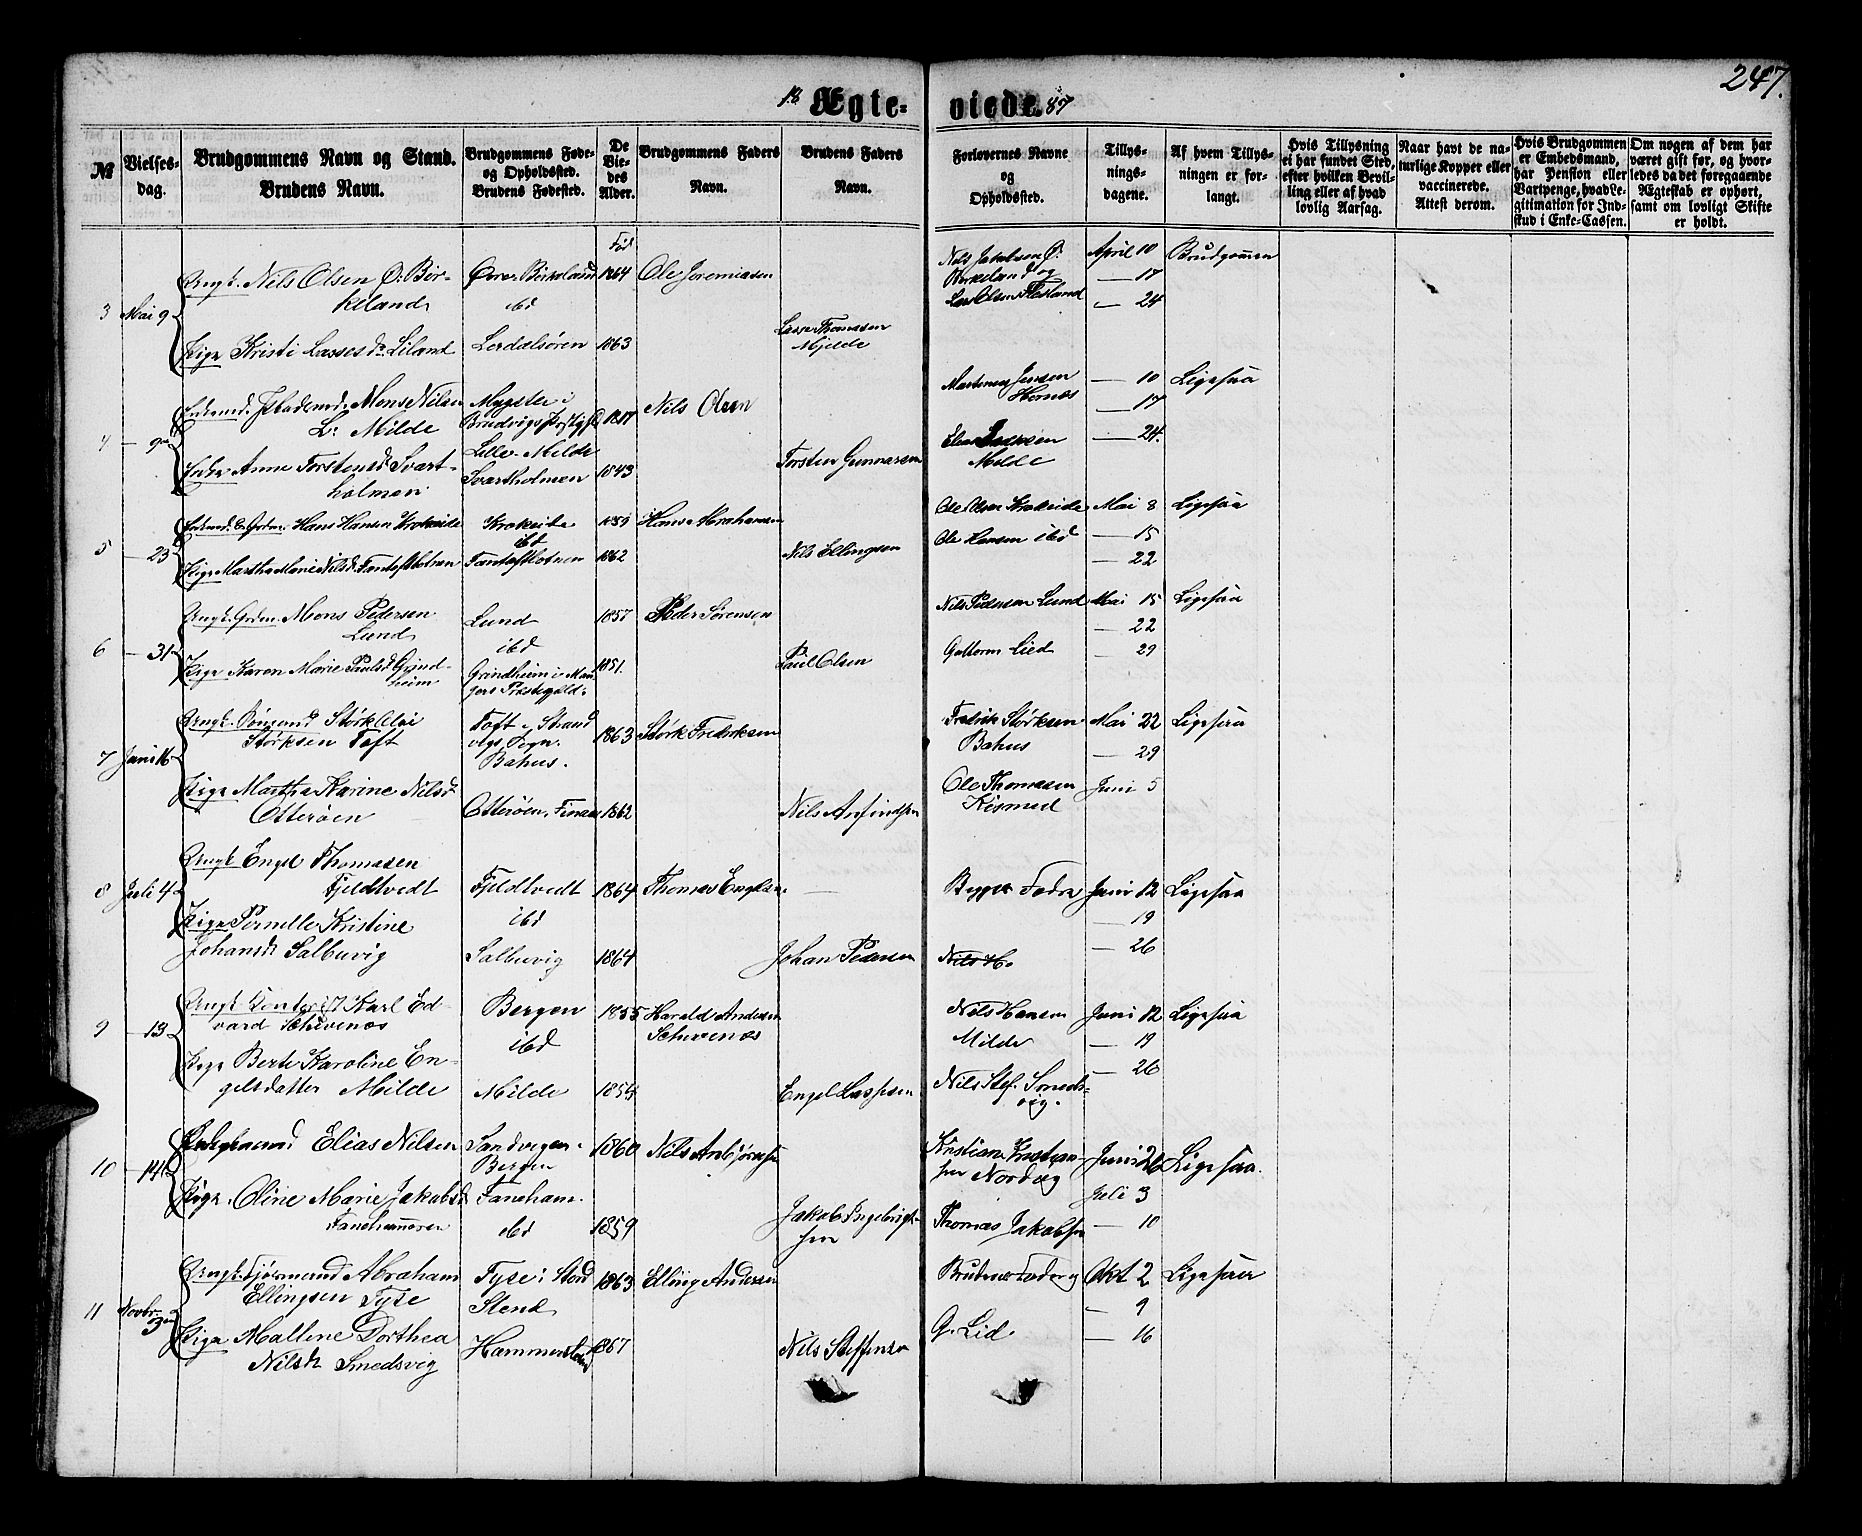 247.
18 Ægteviede. 87
№
Vielsesdag.
Brudgommens Navn og Stand.
Brudens Navn.
Brudgommens Føde- og Opholdssted.
Brudens Fødested.
De Viedes Alder.
Brudgommens Faders Navn.
Brudens Faders Navn.
Forlovernes Navne og Opholdssted.
Tillysningsdagene.
Af hvem Tillysningen er forlangt.
Hvis Tillysning ei har fundet Sted, efter hvilken Bevilling eller af hvad lovlig Aarsag.
Naar havt de naturlige Kopper eller vaccinerede. Attest derom.
Hvis Brudgommen er Embedsmand, har Pension eller Vartpenge, hvad Legitimation for Indskud i Enke-Cassen.
Om nogen af dem har været gift før, og hvorledes da det foregaaende Ægteskab er ophørt, samt om lovligt Skifte er holdt.
3 Mai 9
Ungk. Nils Olsen Ø: Birkeland
Øvre Birkeland ibd
Fød 1864
Ole Jeremiasen
Nils Jakobsen Ø: Birkeland og
Lars Olsen Flesland
April 10
— 17
— 24
Brudgommen
Pige Kristi Lassesdr Liland
Lerdalsören
1863
Lasse Thomassen Mjelde
4 — 9
Enkemd. Mons Nilsen L: Milde
Mygster i
Lille Milde
Nils Olsen
Jensen
— 10
— 17
— 24.
Ligesaa
Enke Anne Torstensd. Svartholmen
Svartholmen
1843
Torsten Gunnarsen
Milde
5 — 23
Enkemd. Hans Hansen Krokeide
Krokeide ibd
Hans Abrahamsen
Ole Olsen Krokeide
Ole Hansen ibd
Mai 8
— 15
— 22
Ligesaa
Pige Martha Marie Nilsd. Fantoftkotnen
Fantoftkotnen
1862
Nils Ellingsen
6 — 31
Ungk. Grdm. Mons Pedersen Lund
Lund ibd
1857
Peder Sörensen
Nils Pedersen Lund
Guttorm Lied
Mai 15
— 22
— 29
Ligesaa
Pige Karen Marie Paulsd Grindheim
Grindheim i Mangers Præstegjeld.
1851.
Paul Olsen
7 Juni 16
Ungk. Störk Olai
Störksen Toft
Toft i Strandvigs Sogn.
Bahus.
1863
Störk Fredriksen
Fredrik Störksen
Bahus
Mai 22
— 29
Juni 5
Ligesaa
Pige Martha Karine Nilsd.
Otteröen
Otteröen, Finaas
1862
Nils Anfindsen
Ole Thomassen
8 Juli 4
Ungk. Engel Thomasen
Fjeldtvedt
Fjeldtvedt ibd
1864
Thomas Engelsen
Begges Fædre
Juni 12
— 19
— 26
Ligesaa
Pige Pernille Kristine
Johansdr Salbuvig
Salbuvig
1864
Johan Pedersen
Nils H.
9 — 13
Ungk. Kontorist Karl Edvard Schivenæs
Bergen ibd
1855
Harald Andersen
Nils Hansen
Milde
Juni 12
— 19
— 26
Ligesaa
Pige Berte Karoline Engelsdatter Milde
Milde
Engel Lassesen
Nils Stef. Smedsvig.
10 — 14
Elias Nilsen
Sandvigen
Bergen
1860
Nils
Kristian Kristiansen Nordvig
Juni 26
Juli 3
— 10
Ligesaa.
Pige. Oline Marie Jakobsd.
Fanehammeren
Faneham. ibd
1859
Jakob Ingebrigtsen
Thomas Jakobsen
11 Novbr. 3
Ungk. Abraham
Ellingsen Tyse
Tyse i Stord
Stend
1863
Elling Andersen
Brudens Fader og
G. Lid.
Okt 2
— 9
— 16
Ligesaa
Pige Malline Dorthea
Nilsdr Smedsvig
1867
Nils Steffensen